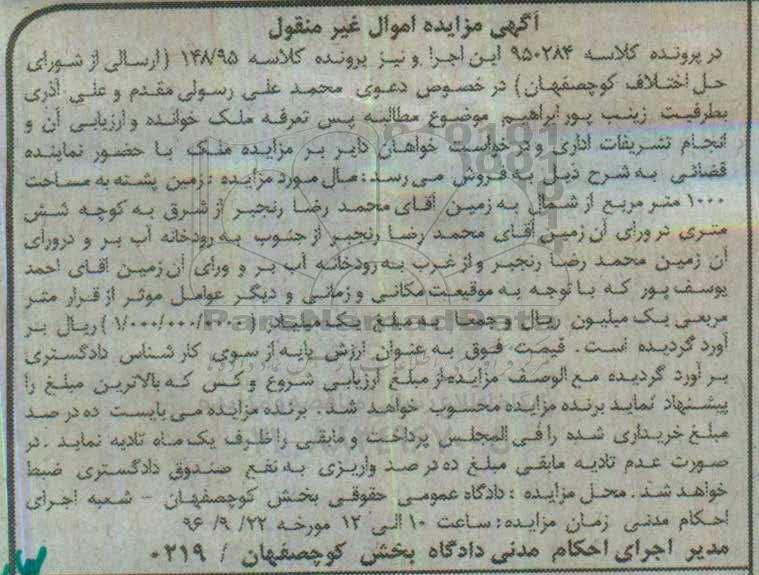 آگهی مزایده اموال غیر منقول
در پرونده کلاسه ۹۵۰۲۸۴ این اجرا و نیز پرونده کلاسه ۱۴۸/۹۵ (ارسالی از شورای
حل اختلاف کوچصفهان) در خصوص دعوی محمد علی رسولی مقدم و علی آذری
بطرفیت زینب پور ابراهیم موضوع مطالبه پس تعرفه ملک خوانده و ارزیابی آن و
انجام تشریفات اداری و درخواست خواهان دایر بر مزایده ملک با حضور نماینده
قضائی به شرح ذیل به فروش می رسد: مال مورد مزایده: زمین پشته به مساحت
۱۰۰۰ متر مربع از شمال به زمین آقای محمد رضا رنجبر از شرق به کوچه شش
متری در ورای آن زمین آقای محمد رضا رنجبر از جنوب به رودخانه آب بر و در ورای
آن زمین محمد رضا رنجبر و از غرب به رودخانه آب بر و ورای آن زمین آقای احمد
یوسف پور که با توجه به موقعیت مکانی و زمانی و دیگر عوامل موثر از قرار متر
مربعی یک میلیون ریال و جمعا به مبلغ یک میلیارد (۱/۰۰۰/۰۰۰/۰۰۰) ریال بر
آورد گردیده است. قیمت فوق به عنوان ارزش پایه از سوی کارشناس دادگستری
بر آورد گردیده مع الوصف مزایده از مبلغ ارزیابی شروع و کس که بالاترین مبلغ را
پیشنهاد نماید برنده مزایده محسوب خواهد شد. برنده مزایده می بایست ده در صد
مبلغ خریداری شده را فی المجلس پرداخت و مابقی را ظرف یک ماه تادیه نماید. در
صورت عدم تادیه مابقی مبلغ ده در صد واریزی به نفع صندوق دادگستری ضبط
خواهد شد. محل مزایده: دادگاه عمومی حقوقی بخش کوچصفهان - شعبه اجرای
احکام مدنی زمان مزایده: ساعت ۱۰ الی ۱۲ مورخه ۲۲/ ۹/ ۹۶
مدیر اجرای احکام مدنی دادگاه بخش کوچصفهان / ۰۲۱۹
ParsNamadData